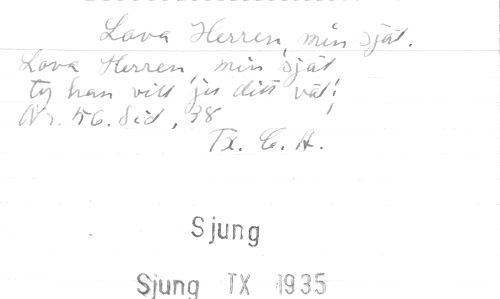 Lova Herren, min själ.
Lova Herren, min själ
ty han vill ju ditt väl!
Nr. 56. Sid, 38
Tx. C. A.
Sjung
Sjung TX 1935